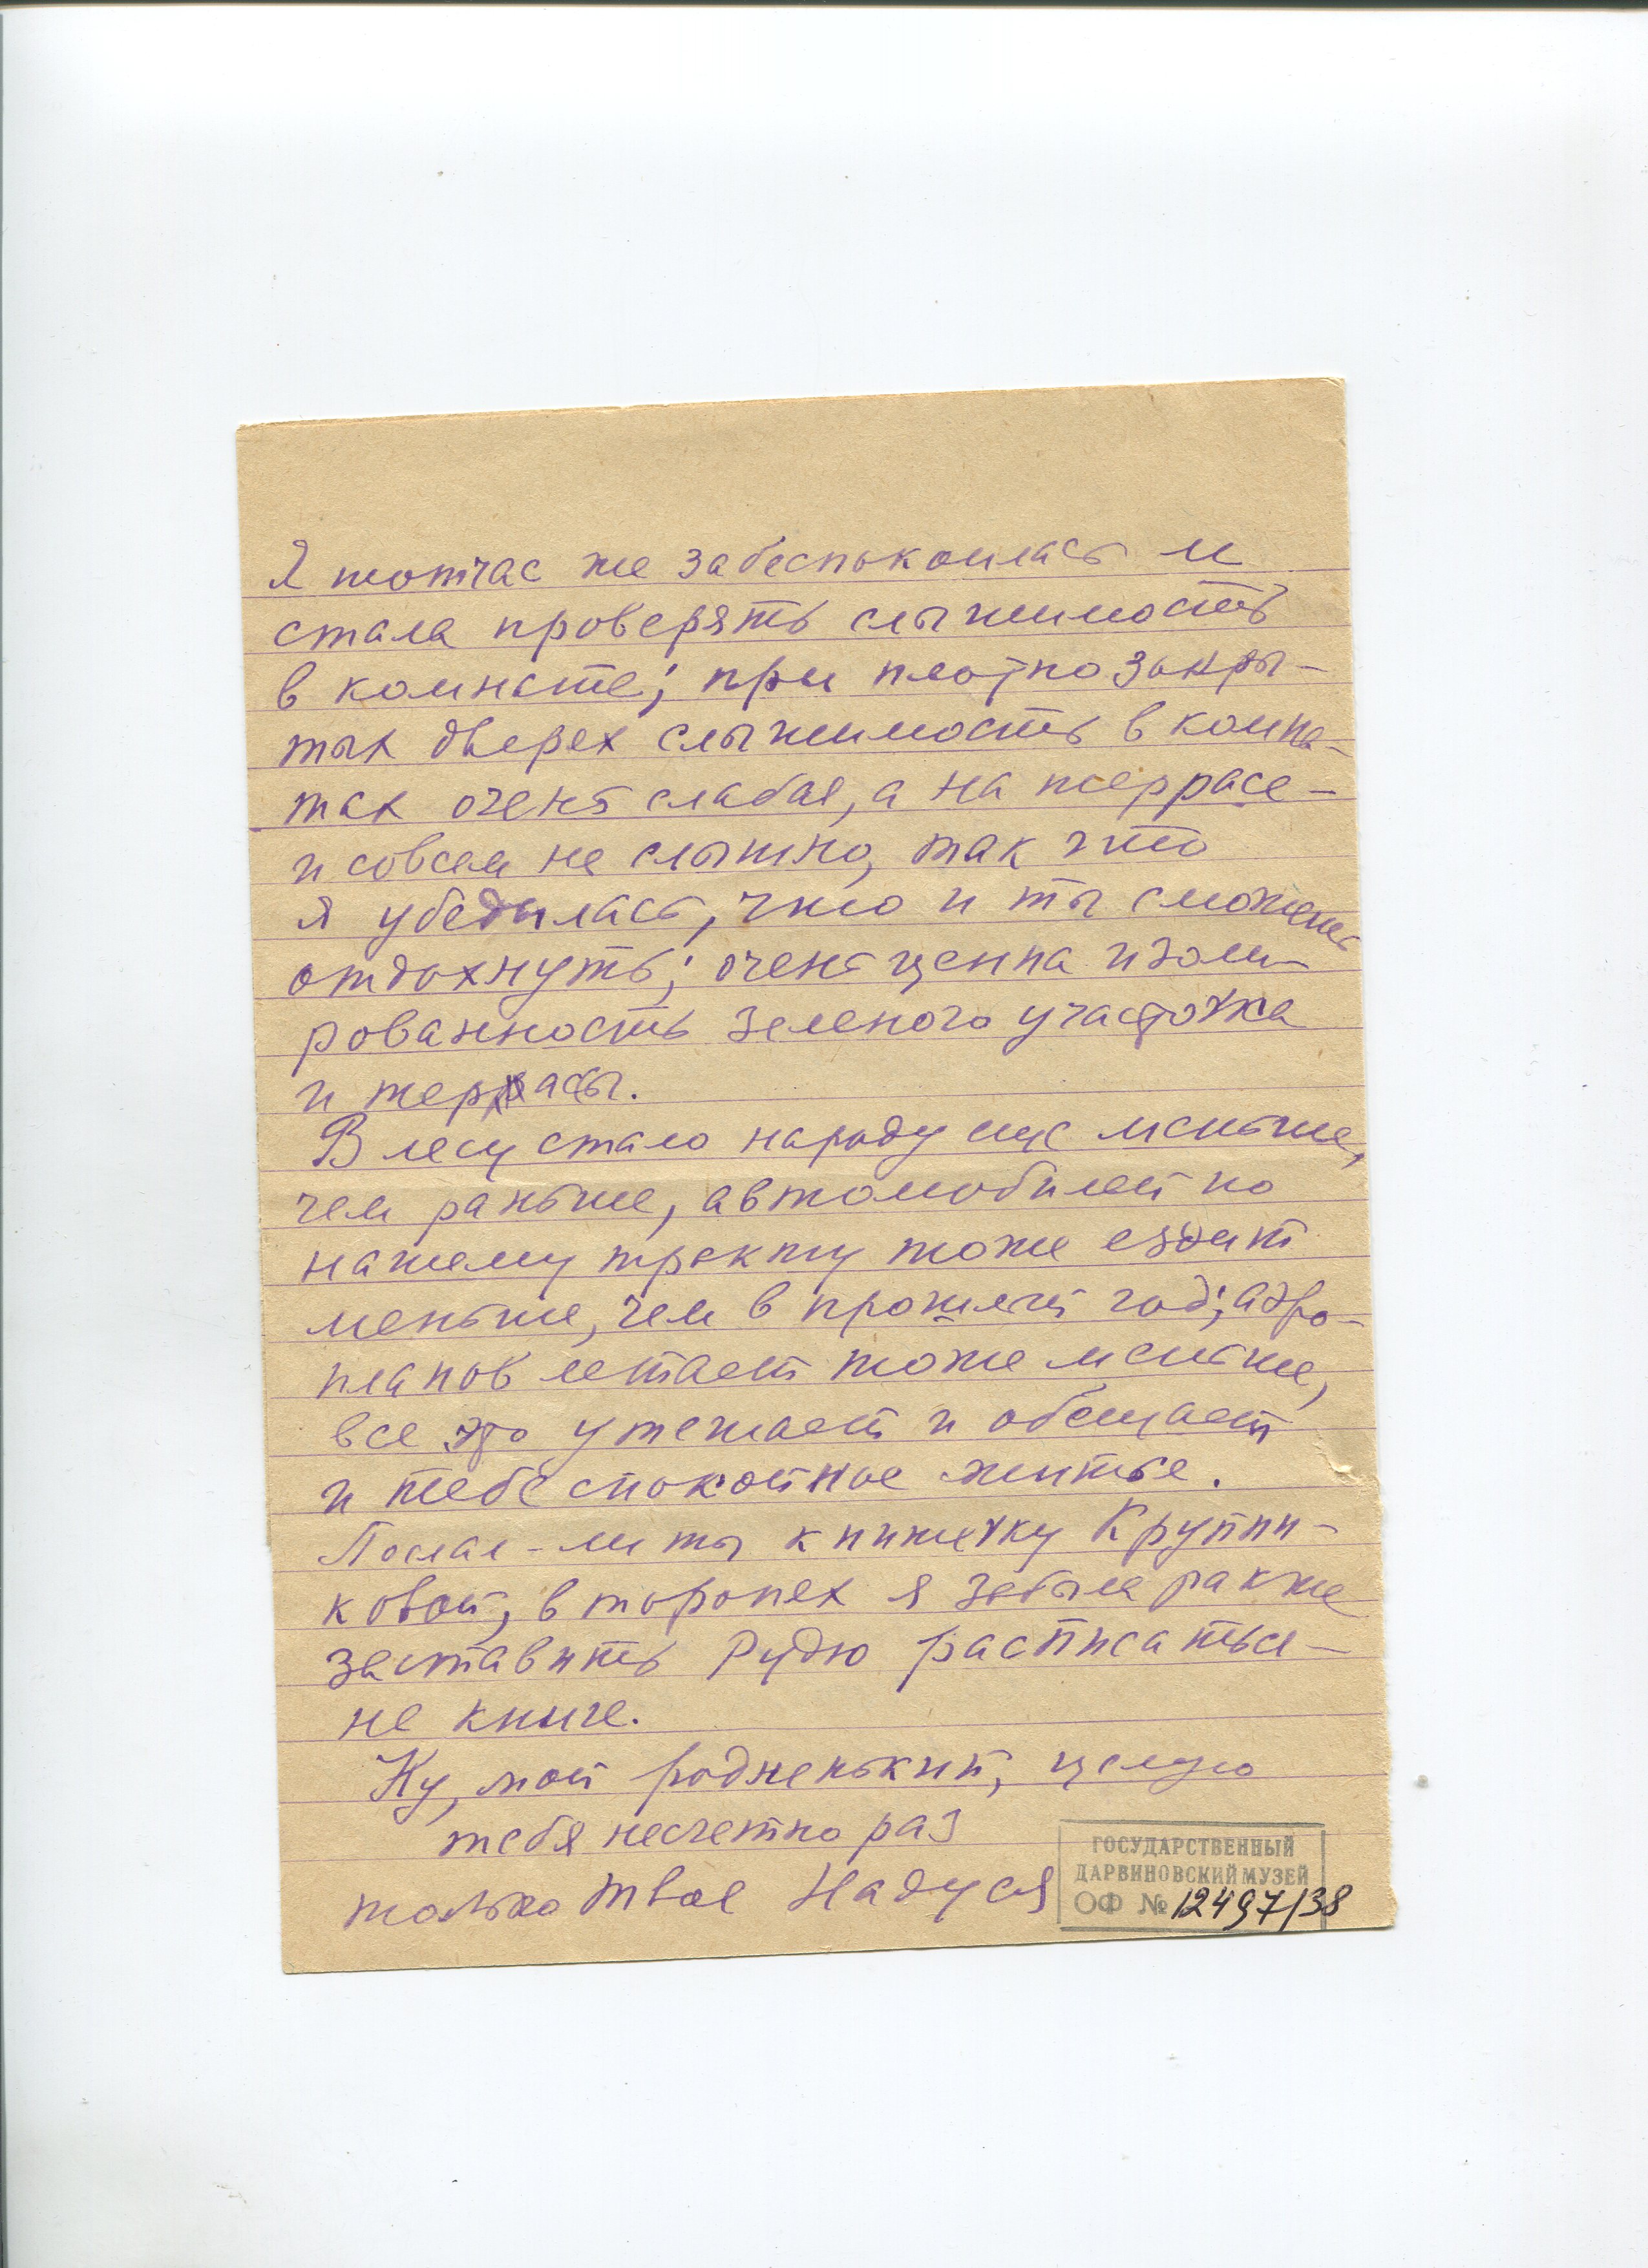 Я тотчас же забеспокоилась и
стала проверять слышимость
в комнате; при плотно закры-
тых дверях слышимость в комна-
тах очень слабая, а на террасе -
и совсем не слышно, так что
я убедилась, что и ты сможешь
отдохнуть; очень ценна изоли-
рованность зеленого участочка
и террасы.
В лесу стало народу еще меньше,
чем раньше, автомобилей по
нашему тракту тоже ездит
меньше, чем в прошлый год; аэро-
планов летает тоже меньше,
все это утешает и обещает
и тебе спокойное житье.
Послал-ли ты книжечку Крупи-
ковой, в торопях я забыла также
заставить Рудю расписаться -
на книге.
Ну, мой родненький, целую
тебя несчетно раз
только твоя Надуся
ГОСУДАРСТВЕННЫЙ
ДАРВИНОВСКИЙ МУЗЕЙ
ОФ № 12497/38